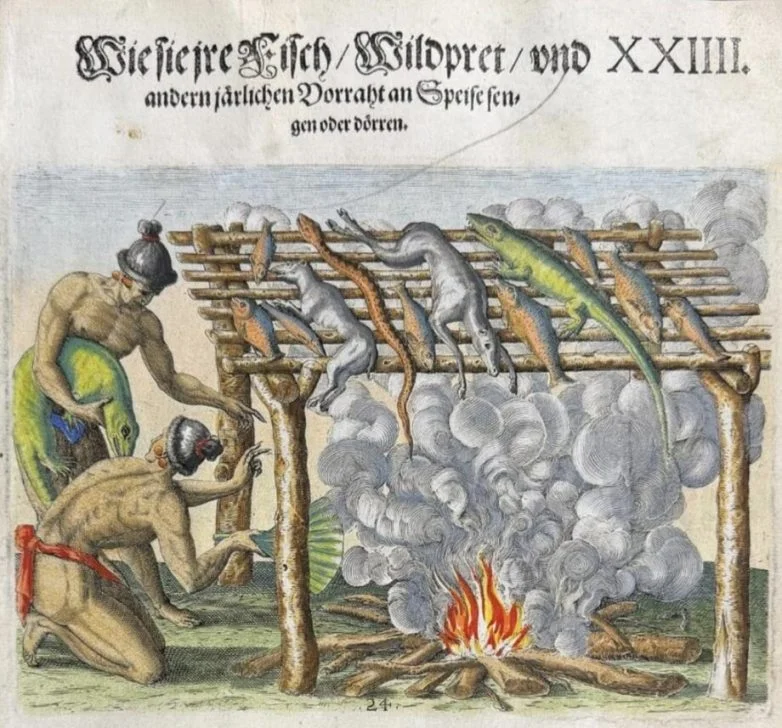 Wie sie jre Fisch / Wildpret / vnd XXIIII.
andern järlichen Vorraht an Speise sen⸗
gen oder dörren.
24.